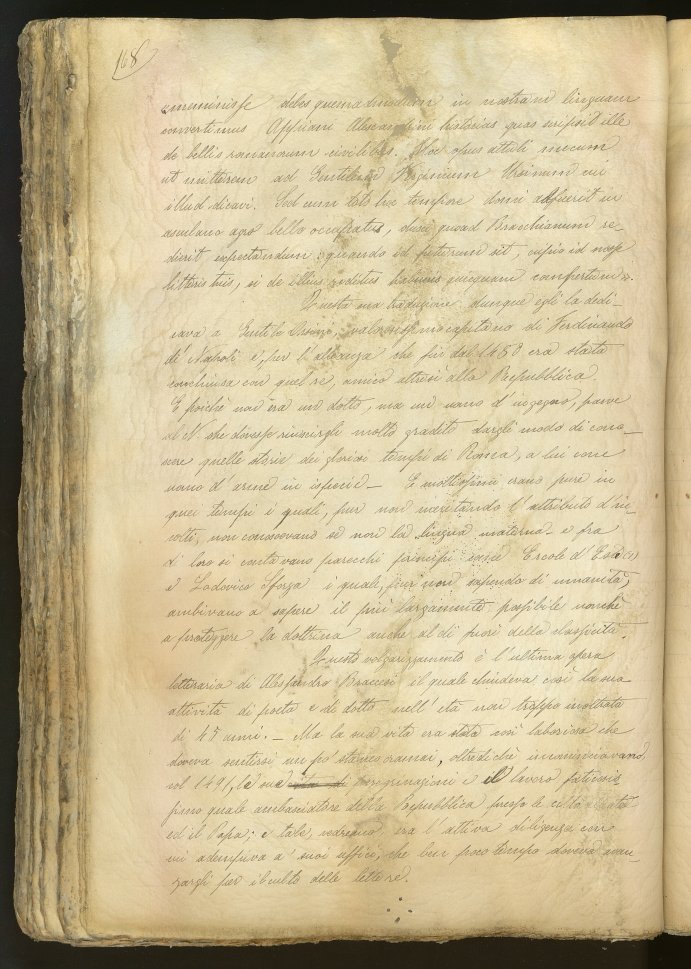 168
meminisse debes quemadmodum in nostram linguam
convertimus Appiani Alexandrini historias quas scripsit ille
de bellis romanorum civilibus. Hoc opus attuli mecum
ut mitterem ad Gentilem Virginium Ursinum cui
illud dicavi. Sed cum toto hoc tempore domi abfuerit in
asculano agro bello occupatus, duxi quoad Bracchianum re-
dierit expectandum: quando id futurum sit, cupio id nosse
litteris tuis, si de illius reditu habueris quicquam compertum».
Questa sua traduzione dunque egli la dedi-
cava a Gentile Orsini, valorosissimo capitano di Ferdinando
di Napoli e, per l'alleanza che fin dal 1480 era stata
conchiusa con quel re, amico altresì alla Repubblica.
E poichè non era un dotto, ma un uomo d'ingegno, parve
al N. che dovesse riuscirgli molto gradito dargli modo di cono-
scere quelle storie dei gloriosi tempi di Roma, a lui come
uomo d'arme in ispecie — E moltissimi erano pure in
quei tempi i quali, pur non meritando l'attributo d'in-
colti, non conoscevano se non la lingua materna — e fra
di loro si contavano parecchi principi come Ercole d'Este (1)
e Lodovico Sforza i quali, pur non sapendo di umanità,
ambivano a sapere il più largamente possibile nonchè
a proteggere la dottrina anche al di fuori della classicità.
Questo volgarizzamento è l'ultima opera
letteraria di Alessandro Braccesi il quale chiudeva così la sua
attività di poeta e di dotto nell'età non troppo inoltrata
di 45 anni. — Ma la sua vita era stata così laboriosa che
doveva sentirsi un po' stanco oramai, oltredichè incominciavano,
col 1491, le sue peregrinazioni e il lavoro faticoso
suo quale ambasciatore della Repubblica presso le città
ed il Papa; e tale, vedremo, era l'attiva diligenza con
cui adempiva a' suoi uffici, che ben poco tempo doveva avan-
zargli per il culto delle lettere.